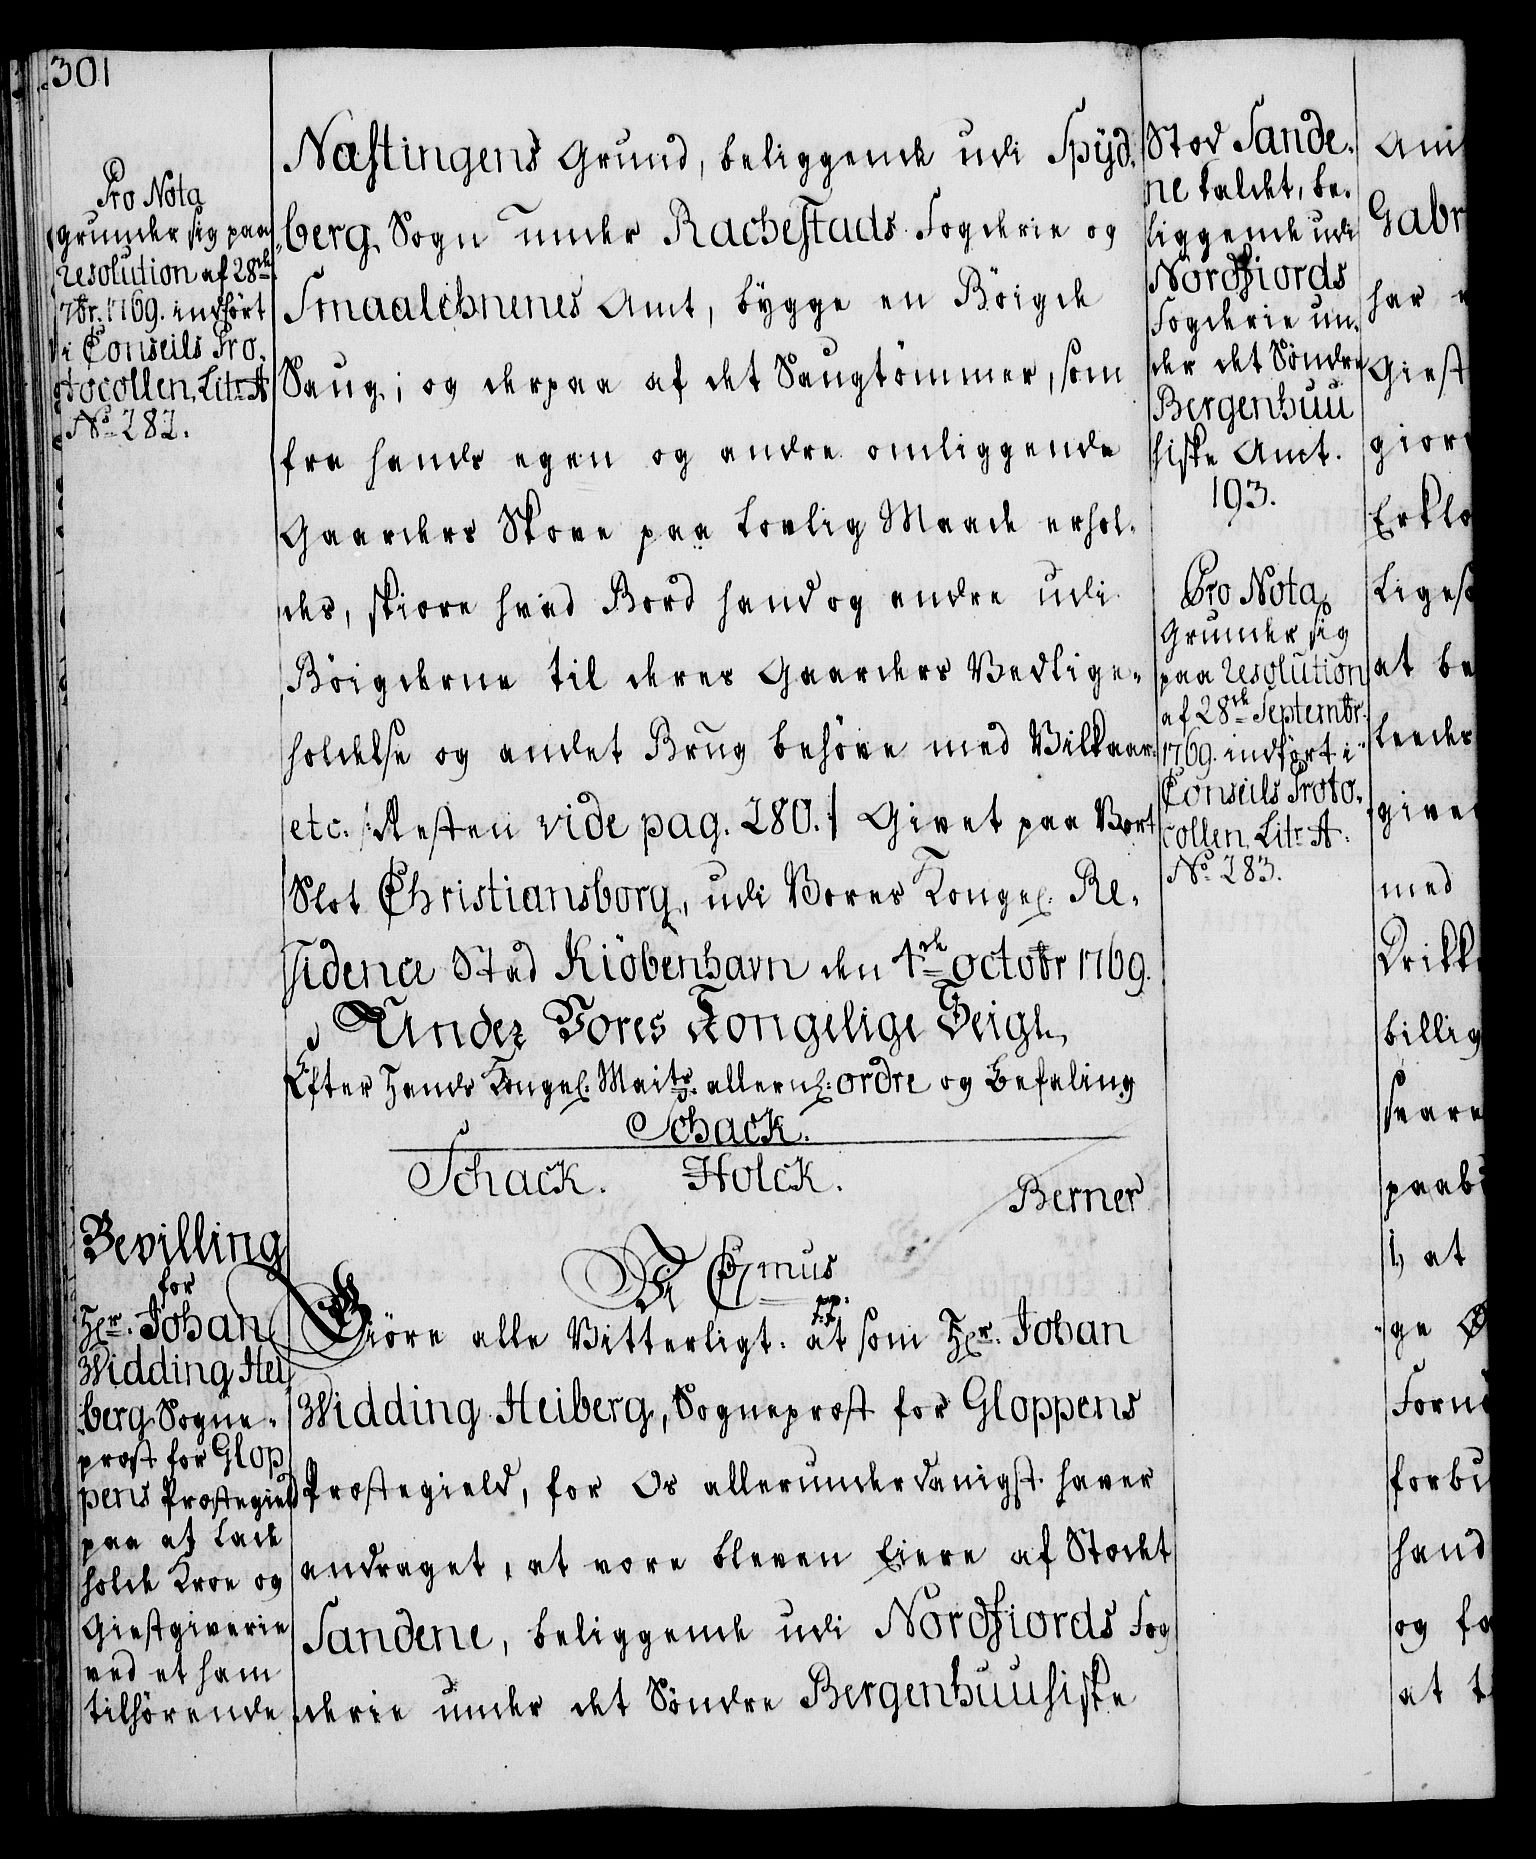 301
Pro Nota
grunder sig paa
resolution af 28de
7br. 1769. indført
i Conseils Pro,
tocollen, Litr. A
No. 282.
Næstingens Grund, beliggende udi Spÿd,
berg Sogn under Rachestads Fogderie og
Smaalehnenes Amt, bygge en Böigde
Saug; og derpaa af det Saugtömmer, som
fra hands egen og andre omliggende
Gaarders Skove paa lovlig Maade erhol,
des, skiære hvad Bord hand og andre udi
Böigderne til deres Gaarders Vedlige,
holdelse og andet Brug behöve med Vilkaar
etc. /: Resten vide pag. 280. :/ Givet paa Vort
Slot Christiansborg, udi Vores Kongel. Re,
sidence Stad Kiöbenhavn den 4de octobr 1769.
Under Vores Kongelige Seigl,
Efter Hands Kongel. Maits. allern: ordre og Befaling
Schack.
Schack. Holck. Berner
Bevilling
for
Hr. Johan
Widding Hei,
berg Sogne,
præst for Glop
pens Præstegield
paa at lade
holde Kroe og
Giestgiverie
ved et ham
tilhörende
Vi C7mus
p.p.
t.t.
Giöre alle Vitterligt: at som Hr. Johan
Widding Heiberg, Sognepræst for Gloppens
Præstegield, for Os allerunderdanigst haver
andraget, at være bleven Eiere af Stædet
Sandene, beliggende udi Nordfiords Fog
derie under det Söndre Bergenhuusiske
Stæd Sande,
ne kaldet, be,
liggende udi
Nordfiords
Fogderie un,
der det Söndre
Bergenhuu
siske Amt.
193.
Pro Nota
grunder sig
paa resolution
af 28de Septembr.
1769. indfört i
Conseils Proto,
collen, Litr. A.
No. 283.
Amt
Gabr
har
Giest
giør
Erklæ
ligesø
at be
leeder
give
med
Drikk
billig
svare
paab
1, at
ge
Forn
forbu
hand
og fo
at t